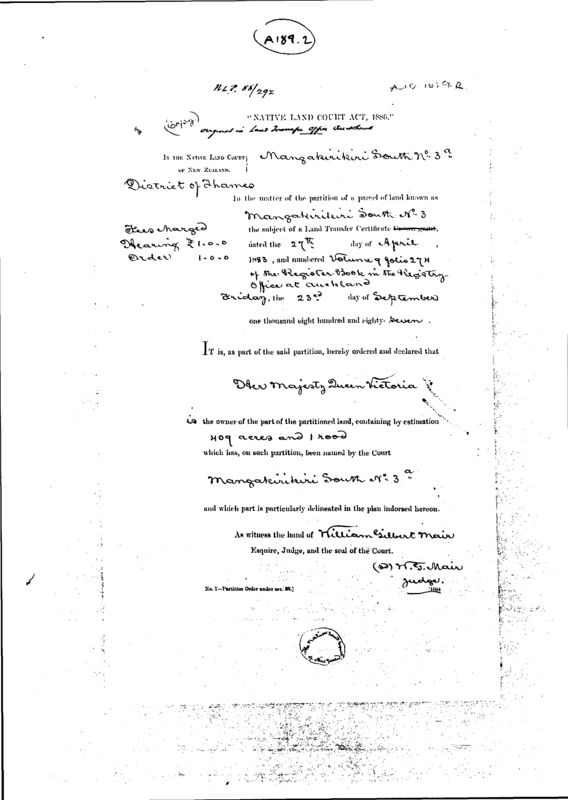 A189.2
N.L.P. 88/292
"NATIVE LAND COURT ACT, 1886."
(Copy)
original in Land Transfer Office Auckland
IN THE NATIVE LAND COURT
OF NEW ZEALAND.
Mangakirikiri South No. 3a
District of Thames
In the matter of the partition of a parcel of land known as
Mangakirikiri South No. 3
Fees charged
Hearing £1.0.0
Order 1.0.0
the subject of a Land Transfer Certificate
dated the 27th day of April,
1883, and numbered Volume 9 folio 274
of the Register Book in the Registry
Office at Auckland
Friday, the 23rd day of September
one thousand eight hundred and eighty-seven.
IT is, as part of the said partition, hereby ordered and declared that
Her Majesty Queen Victoria
is the owner of the part of the partitioned land, containing by estimation
409 acres and 1 rood
which has, on such partition, been named by the Court
Mangakirikiri South No. 3a
and which part is particularly delineated in the plan indorsed hereon.
As witness the hand of William Gilbert Mair
Esquire, Judge, and the seal of the Court.
(Sd) W. G. Mair
Judge.
No. 7—Partition Order under sec.